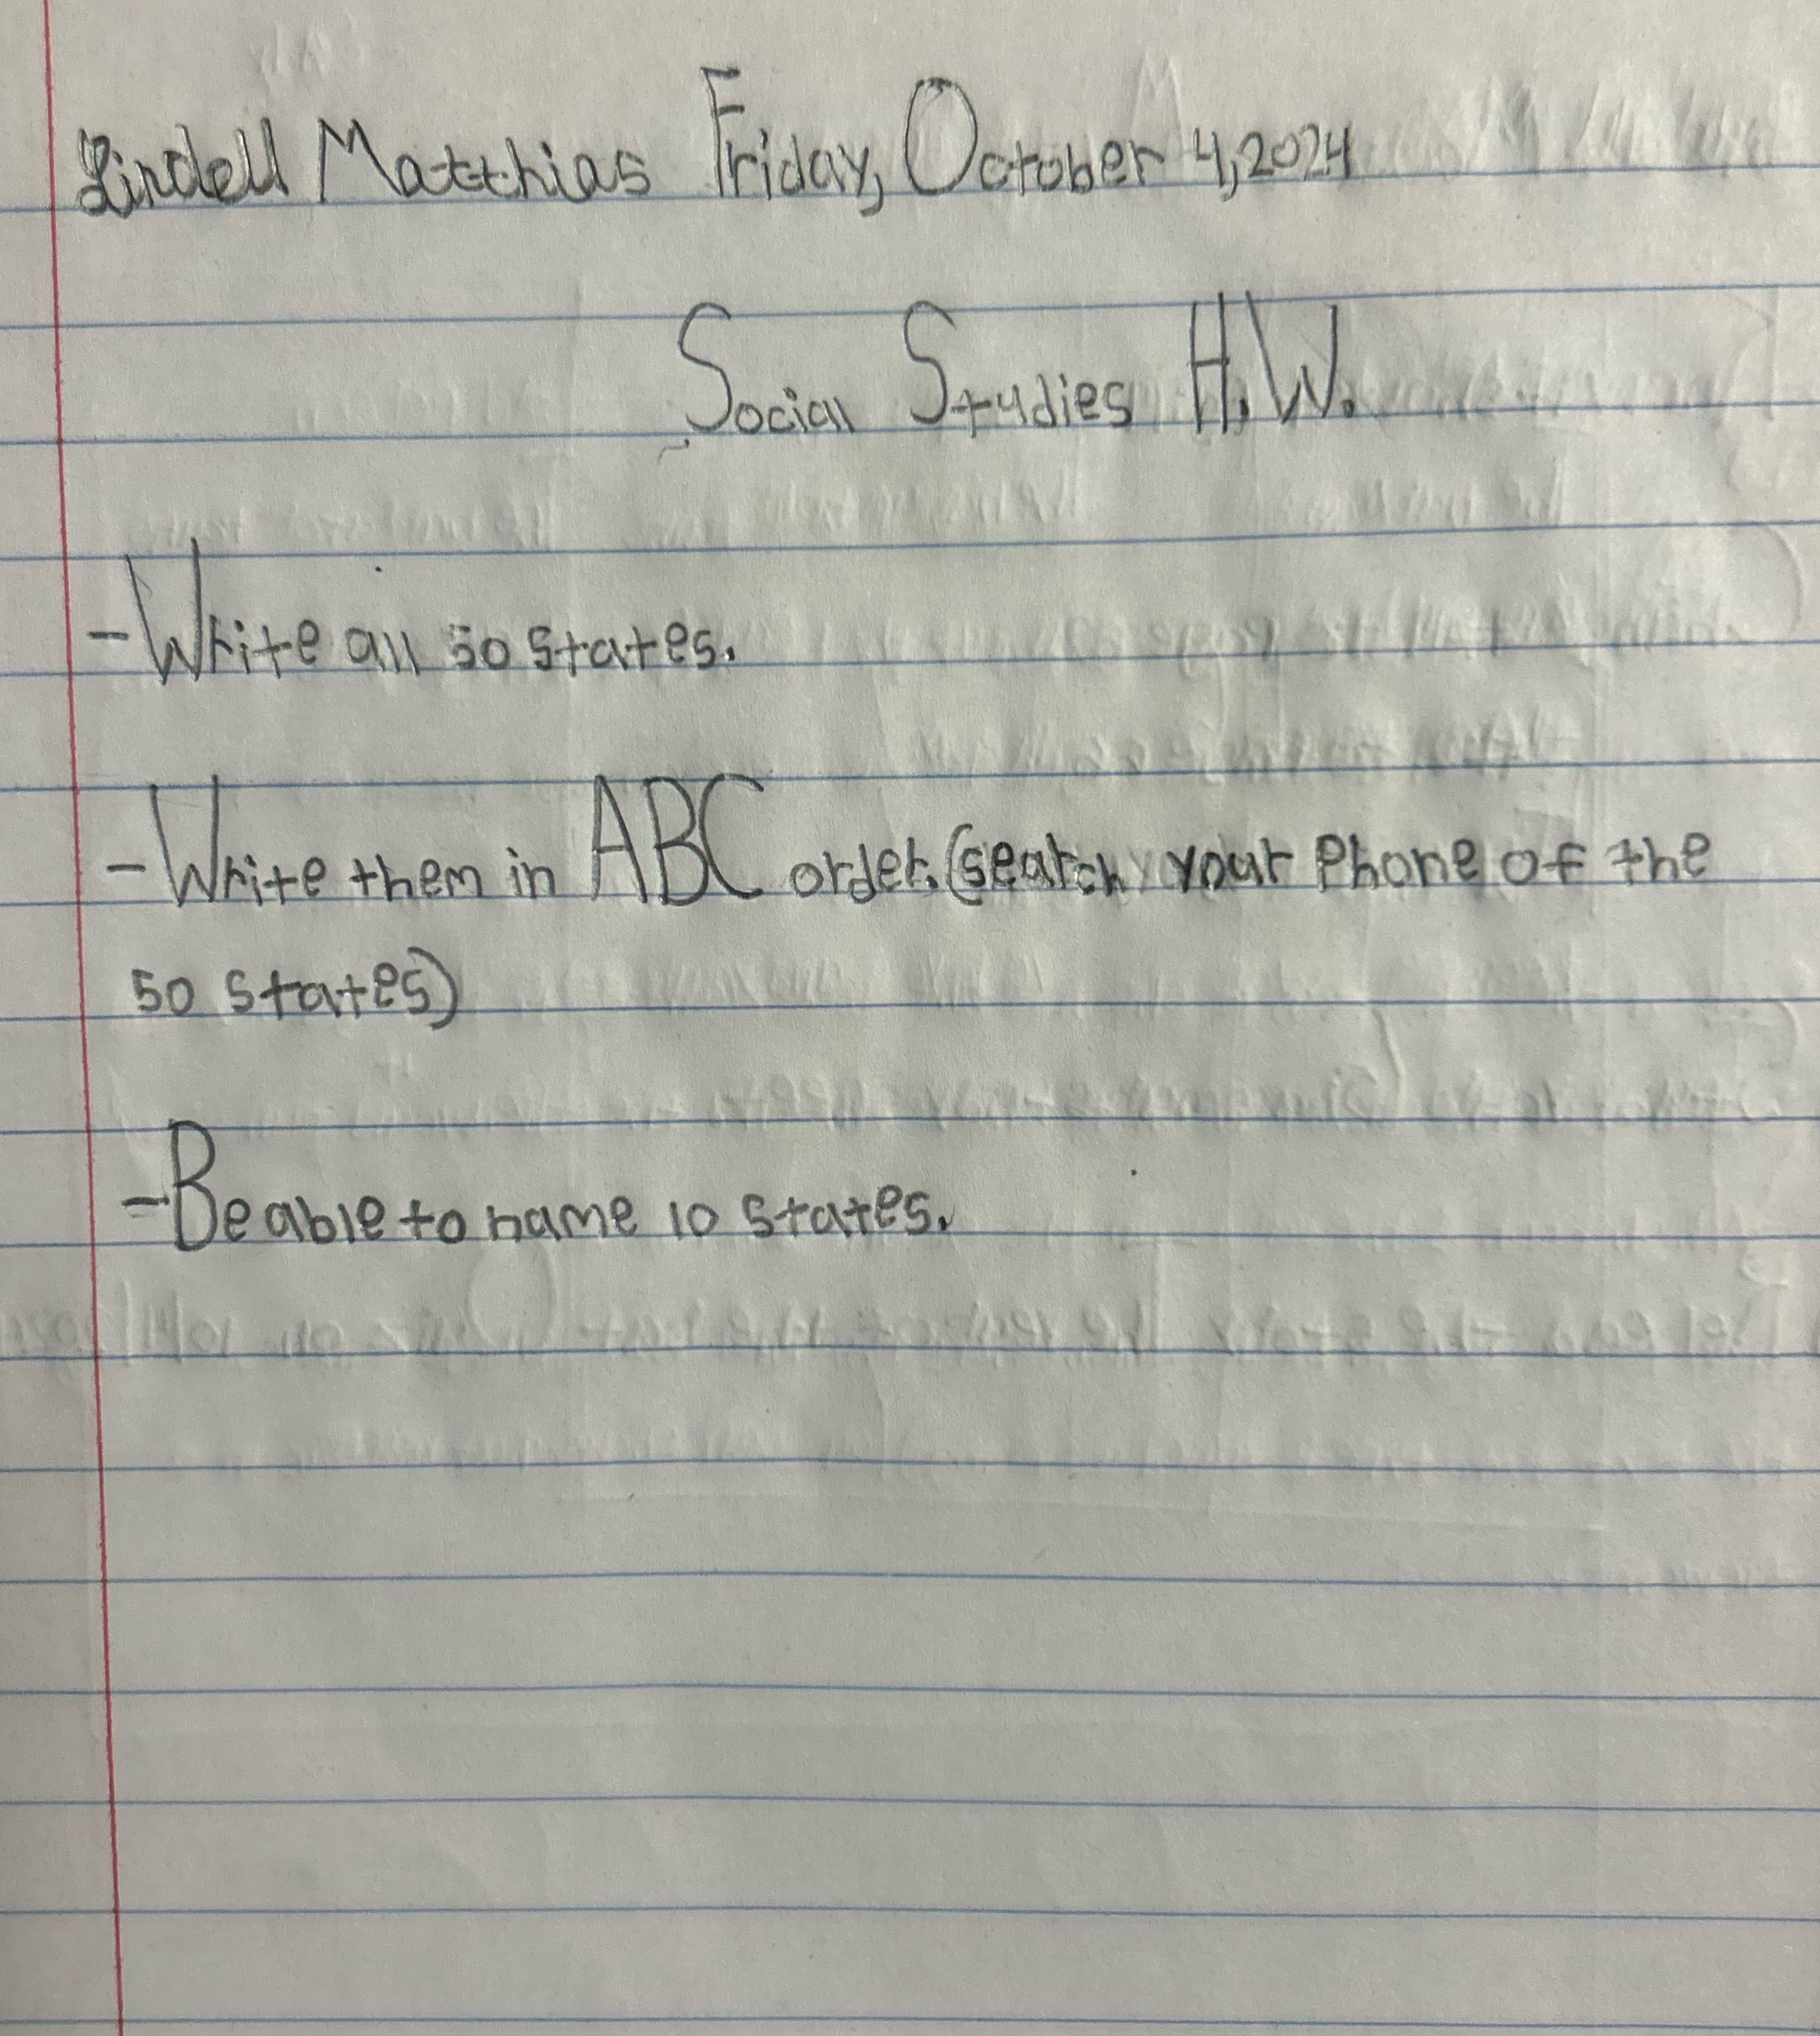 Lindell Matthias Friday, October 4, 2024
Social Studies H.W.
- Write all 50 states.
- Write them in ABC order. (search your Phone of the
50 states)
- Be able to name 10 states.